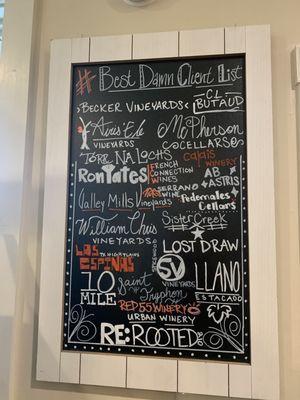 # Best Damn Client List
Becker Vineyards
CL
Butaud
Vineyards
McPherson
Cellars
Calais
Winery
Ron Yates
French
Connection
Wines
AB
Astris
Serrano
Wine
Pedernales
Cellars
Valley Mills Vineyards
William Chris
Vineyards
Sister Creek
Lost Draw
TX High Plains
Las
Espinas
Vineyards
Llano
Estacado
10
Mile
Saint
Tryphon
Red 55 Winery
Urban Winery
RE:Rooted